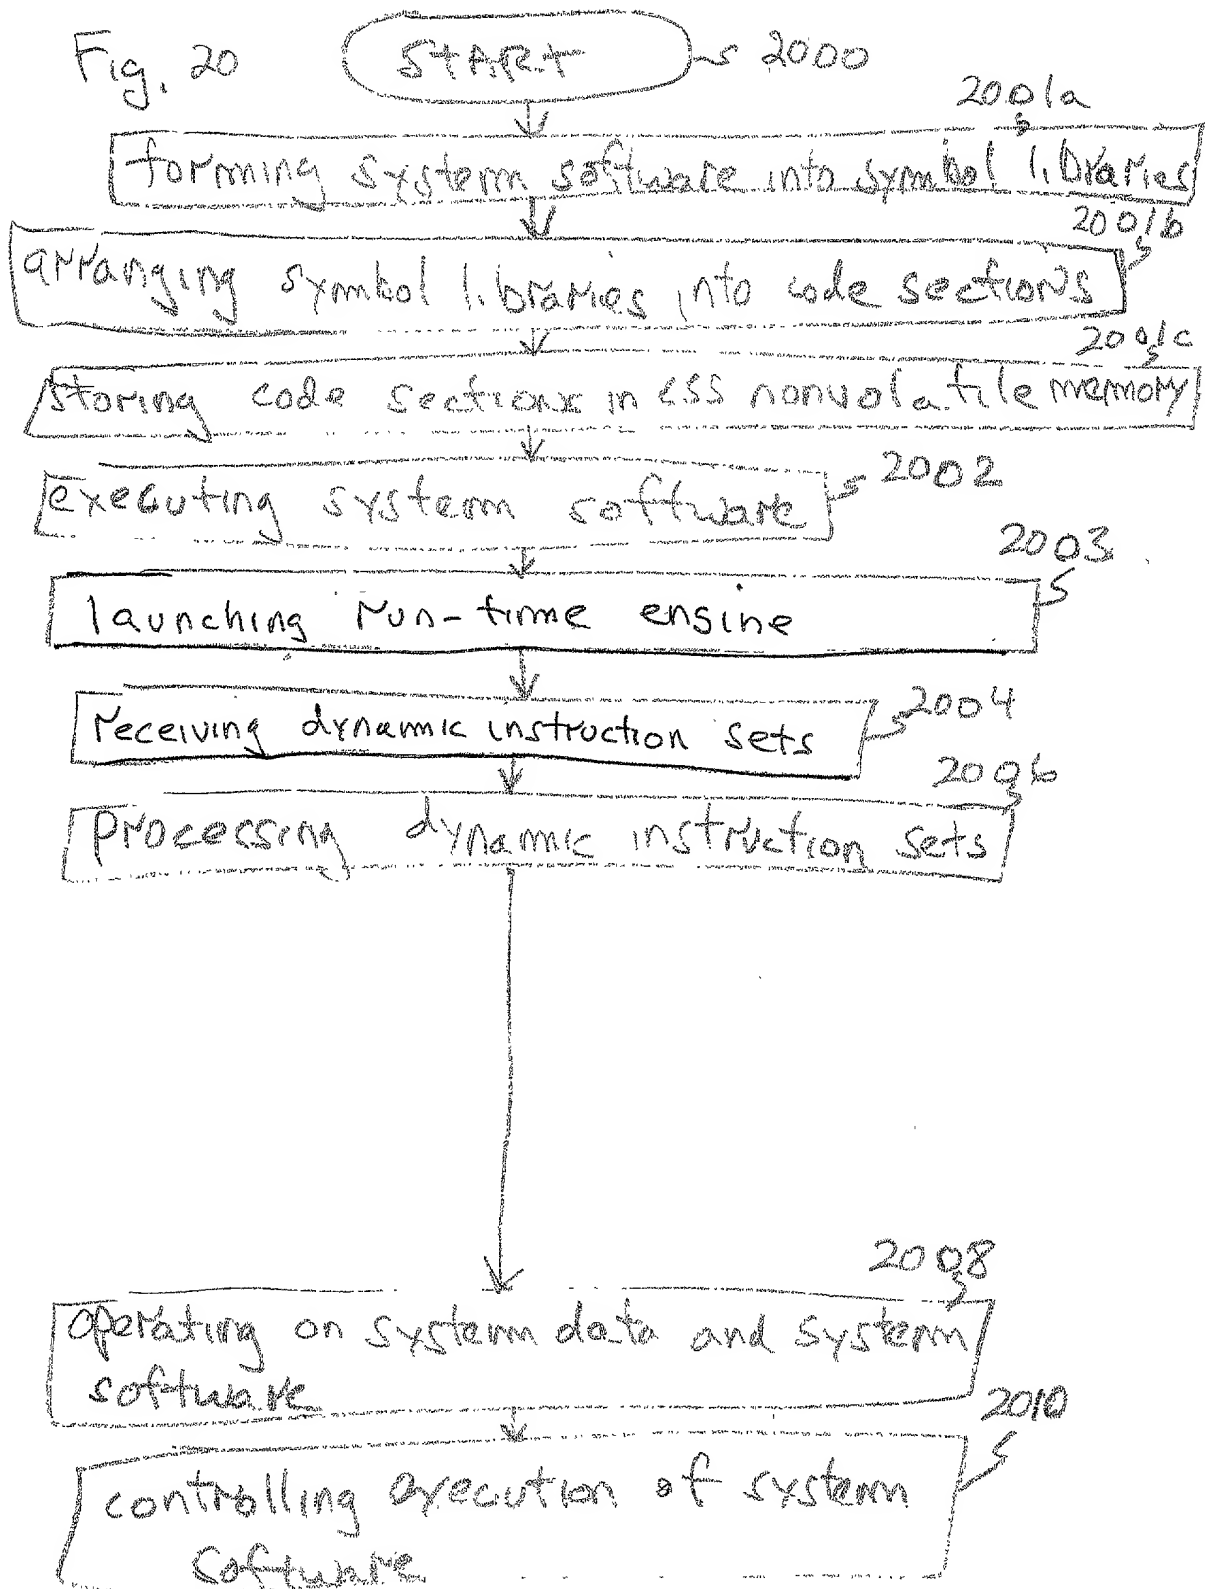 Fig. 20
START 2000
2001a
forming system software into symbol libraries
2001b
arranging symbol libraries into code sections
2001c
storing code sections in CSS nonvolatile memory
executing system software 2002
2003
launching run-time engine
receiving dynamic instruction sets 2004
2006
processing dynamic instruction sets
2008
operating on system data and system
software
2010
controlling execution of system
software